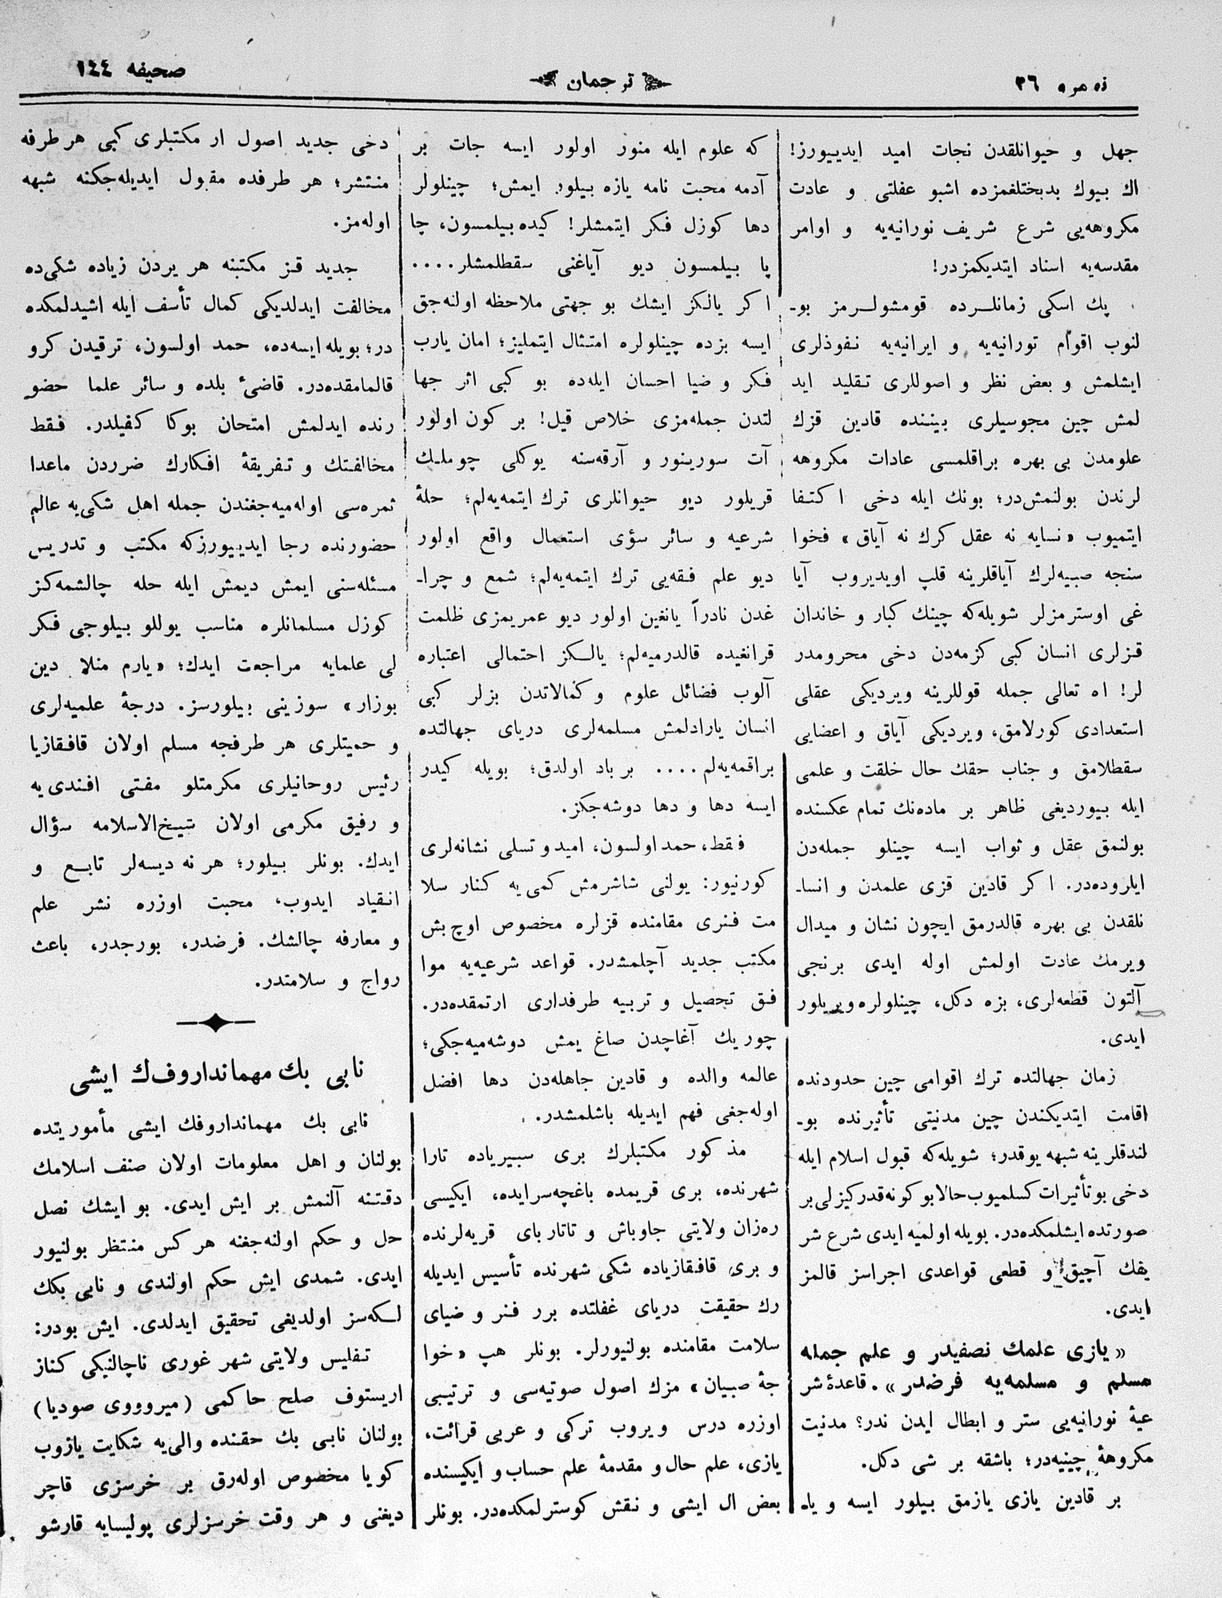 نومرو ٣٦
ترجمان
صحیفه ١٤٤
جهل و حیوانلقدن نجات امید ایدییورز!
اك بیوك بدبختلغمزده اشبو غفلتی و عادت
مکروهه‌یی شرع شریف نورانیه‌یه و اوامر
مقدسه‌یه اسناد ایتدیکمزدر!
پك اسکی زمانلرده قومشولرمز بو-
لنوب اقوام تورانیه‌یه و ایرانیه‌یه نفوذلری
ایشلمش و بعض نظر و اصوللری تقلید اید
لمش چین مجوسیلری بیننده قادین قزك
علومدن بی بهره براقلمسی عادات مکروهه
لرندن بولنمش‌در؛ بونك ایله دخی اکتفا
ایتمیوب «نسایه نه عقل کرك نه آیاق» فحوا
سنجه صبیه‌لرك آیاقلرینه قلپ اویدیروب آیا
غی اوسترمزلر شویله‌که چینك کبار و خاندان
قزلری انسان کبی کزمه‌دن دخی محرومدر
لر! اه تعالی جمله قوللرینه ویردیکی عقلی
استعدادی کورلامق، ویردیکی آیاق و اعضایی
سقطلامق و جناب حقك حال خلقت و علمی
ایله بیوردیغی ظاهر بر ماده‌نك تمام عکسنده
بولنمق عقل و ثواب ایسه چینلو جمله‌دن
ایلروده‌در. اکر قادین قزی علمدن و انسا-
نلقدن بی بهره قالدرمق ایچون نشان و میدال
ویرمك عادت اولمش اوله ایدی برنجی
آلتون قطعه‌لری، بزه دکل، چینلولره ویریلور
ایدی.
زمان جهالتده ترك اقوامی چین حدودنده
اقامت ایتدیکندن چین مدنیتی تأثیرنده بو-
لندقلرینه شبهه یوقدر؛ شویله‌که قبول اسلام ایله
دخی بو تأثیرات کسلمیوب حالا بو کونه قدر کیزلی بر
صورتده ایشلمکده‌در. بویله اولمیه ایدی شرع شر
یفك آچیق و قطعی قواعدی اجراسز قالمز
ایدی.
«یازی علمك نصفیدر و علم جمله
مسلم و مسلمه‌یه فرضدر». قاعدهٔ شر
عیهٔ نورانیه‌یی ستر و ابطال ایدن ندر؟ مدنیت
مکروههٔ چینیه‌در؛ باشقه بر شی دکل.
بر قادین یازی یازمق بیلور ایسه و یا-
که علوم ایله منور اولور ایسه جات بر
آدمه محبت نامه یازه بیلور ایمش؛ چینلولر
دها کوزل فکر ایتمشلر! کیده بیلمسون، چا
پا بیلمسون دیو آیاغنی سقطلمشلر....
اکر یالکز ایشك بو جهتی ملاحظه اولنه‌جق
ایسه بزده چینلولره امتثال ایتملیز؛ امان یارب
فکر و ضیا احسان ایله‌ده بو کبی اثر جها
لتدن جمله‌مزی خلاص قیل! بر کون اولور
آت سورینور و آرقه‌سنه یوکلی چوملك
قریلور دیو حیوانلری ترك ایتمه‌یه‌لم؛ حلهٔ
شرعیه و سائر سؤی استعمال واقع اولور
دیو علم فقه‌یی ترك ایتمه‌یه‌لم؛ شمع و چرا-
غدن نادراً یانغین اولور دیو عمریمزی ظلمت
قرانغیده قالدرمیه‌لم؛ یالکز احتمالی اعتباره
آلوب فضائل علوم و کمالاتدن بزلر کبی
انسان یارادلمش مسلمه‌لری دریای جهالتده
براقمه‌یه‌لم.... بر باد اولدق؛ بویله کیدر
ایسه دها و دها دوشه‌جکز.
فقط، حمد اولسون، امید و تسلی نشانه‌لری
کورنیور: یولنی شاشرمش کمی یه کنار سلا
مت فنری مقامنده قزلره مخصوص اوچ بش
مکتب جدید آچلمشدر. قواعد شرعیه‌یه موا
فق تحصیل و تربیه طرفداری ارتمقده‌در.
چوریك آغاچدن صاغ یمش دوشه‌میه‌جکی؛
عالمه والده و قادین جاهله‌دن دها افضل
اوله‌جغی فهم ایدیله باشلمشدر.
مذکور مکتبلرك بری سبیریاده تارا
شهرنده، بری قریمده باغچه‌سرایده، ایکیسی
ره‌زان ولایتی جاوباش و تاتاربای قریه‌لرنده
و بری قافقازیاده شکی شهرنده تأسیس ایدیله
رك حقیقت دریای غفلتده برر فنر و ضیای
سلامت مقامنده بولنیورلر. بونلر هپ «خوا
جهٔ صبیان» مزك اصول صوتیه‌سی و ترتیبی
اوزره درس ویروب ترکی و عربی قرائت،
یازی، علم حال و مقدمهٔ علم حساب و ایکیسنده
بعض ال ایشی و نقش کوسترلمکده‌در. بونلر
دخی جدید اصول ار مکتبلری کبی هر طرفه
منتشر؛ هر طرفده مقبول ایدیله‌جکنه شبهه
اوله‌مز.
جدید قز مکتبنه هر یردن زیاده شکی‌ده
مخالفت ایدلدیکی کمال تأسف ایله اشیدلمکده
در؛ بویله ایسه‌ده، حمد اولسون، ترقیدن کرو
قالمامقده‌در. قاضیٔ بلده و سائر علما حضو
رنده ایدلمش امتحان بوکا کفیلدر. فقط
مخالفتك و تفریقهٔ افکارك ضرردن ماعدا
ثمره‌سی اوله‌میه‌جغندن جمله اهل شکی‌یه عالم
حضورنده رجا ایدییورزکه مکتب و تدریس
مسئله‌سنی ایمش دیمش ایله حله چالشمه‌کز
کوزل مسلمانلره مناسب یوللو بیلوجی فکر
لی علمایه مراجعت ایدك؛ «یارم منلا دین
بوزار» سوزینی بیلورسز. درجهٔ علمیه‌لری
و حمیتلری هر طرفجه مسلم اولان قافقازیا
رئیس روحانیلری مکرمتلو مفتی افندی‌یه
و رفیق مکرمی اولان شیخ‌الاسلامه سؤال
ایدك. بونلر بیلور؛ هر نه دیسه‌لر تابع و
انقیاد ایدوب، محبت اوزره نشر علم
و معارفه چالشك. فرضدر، بورجدر، باعث
رواج و سلامتدر.
نابی بك مهمانداروف‌ك ایشی
نابی بك مهمانداروفك ایشی مأموریتده
بولنان و اهل معلومات اولان صنف اسلامك
دقتنه آلنمش بر ایش ایدی. بو ایشك نصل
حل و حکم اولنه‌جغنه هر کس منتظر بولنیور
ایدی. شمدی ایش حکم اولندی و نابی بکك
لکه‌سز اولدیغی تحقیق ایدلدی. ایش بودر:
تفلیس ولایتی شهر غوری ناچالنیکی کناز
اریستوف صلح حاکمی (میرووی صودیا)
بولنان نابی بك حقنده والی‌یه شکایت یازوب
کویا مخصوص اوله‌رق بر خرسزی قاچر
دیغنی و هر وقت خرسزلری پولیسایه قارشو